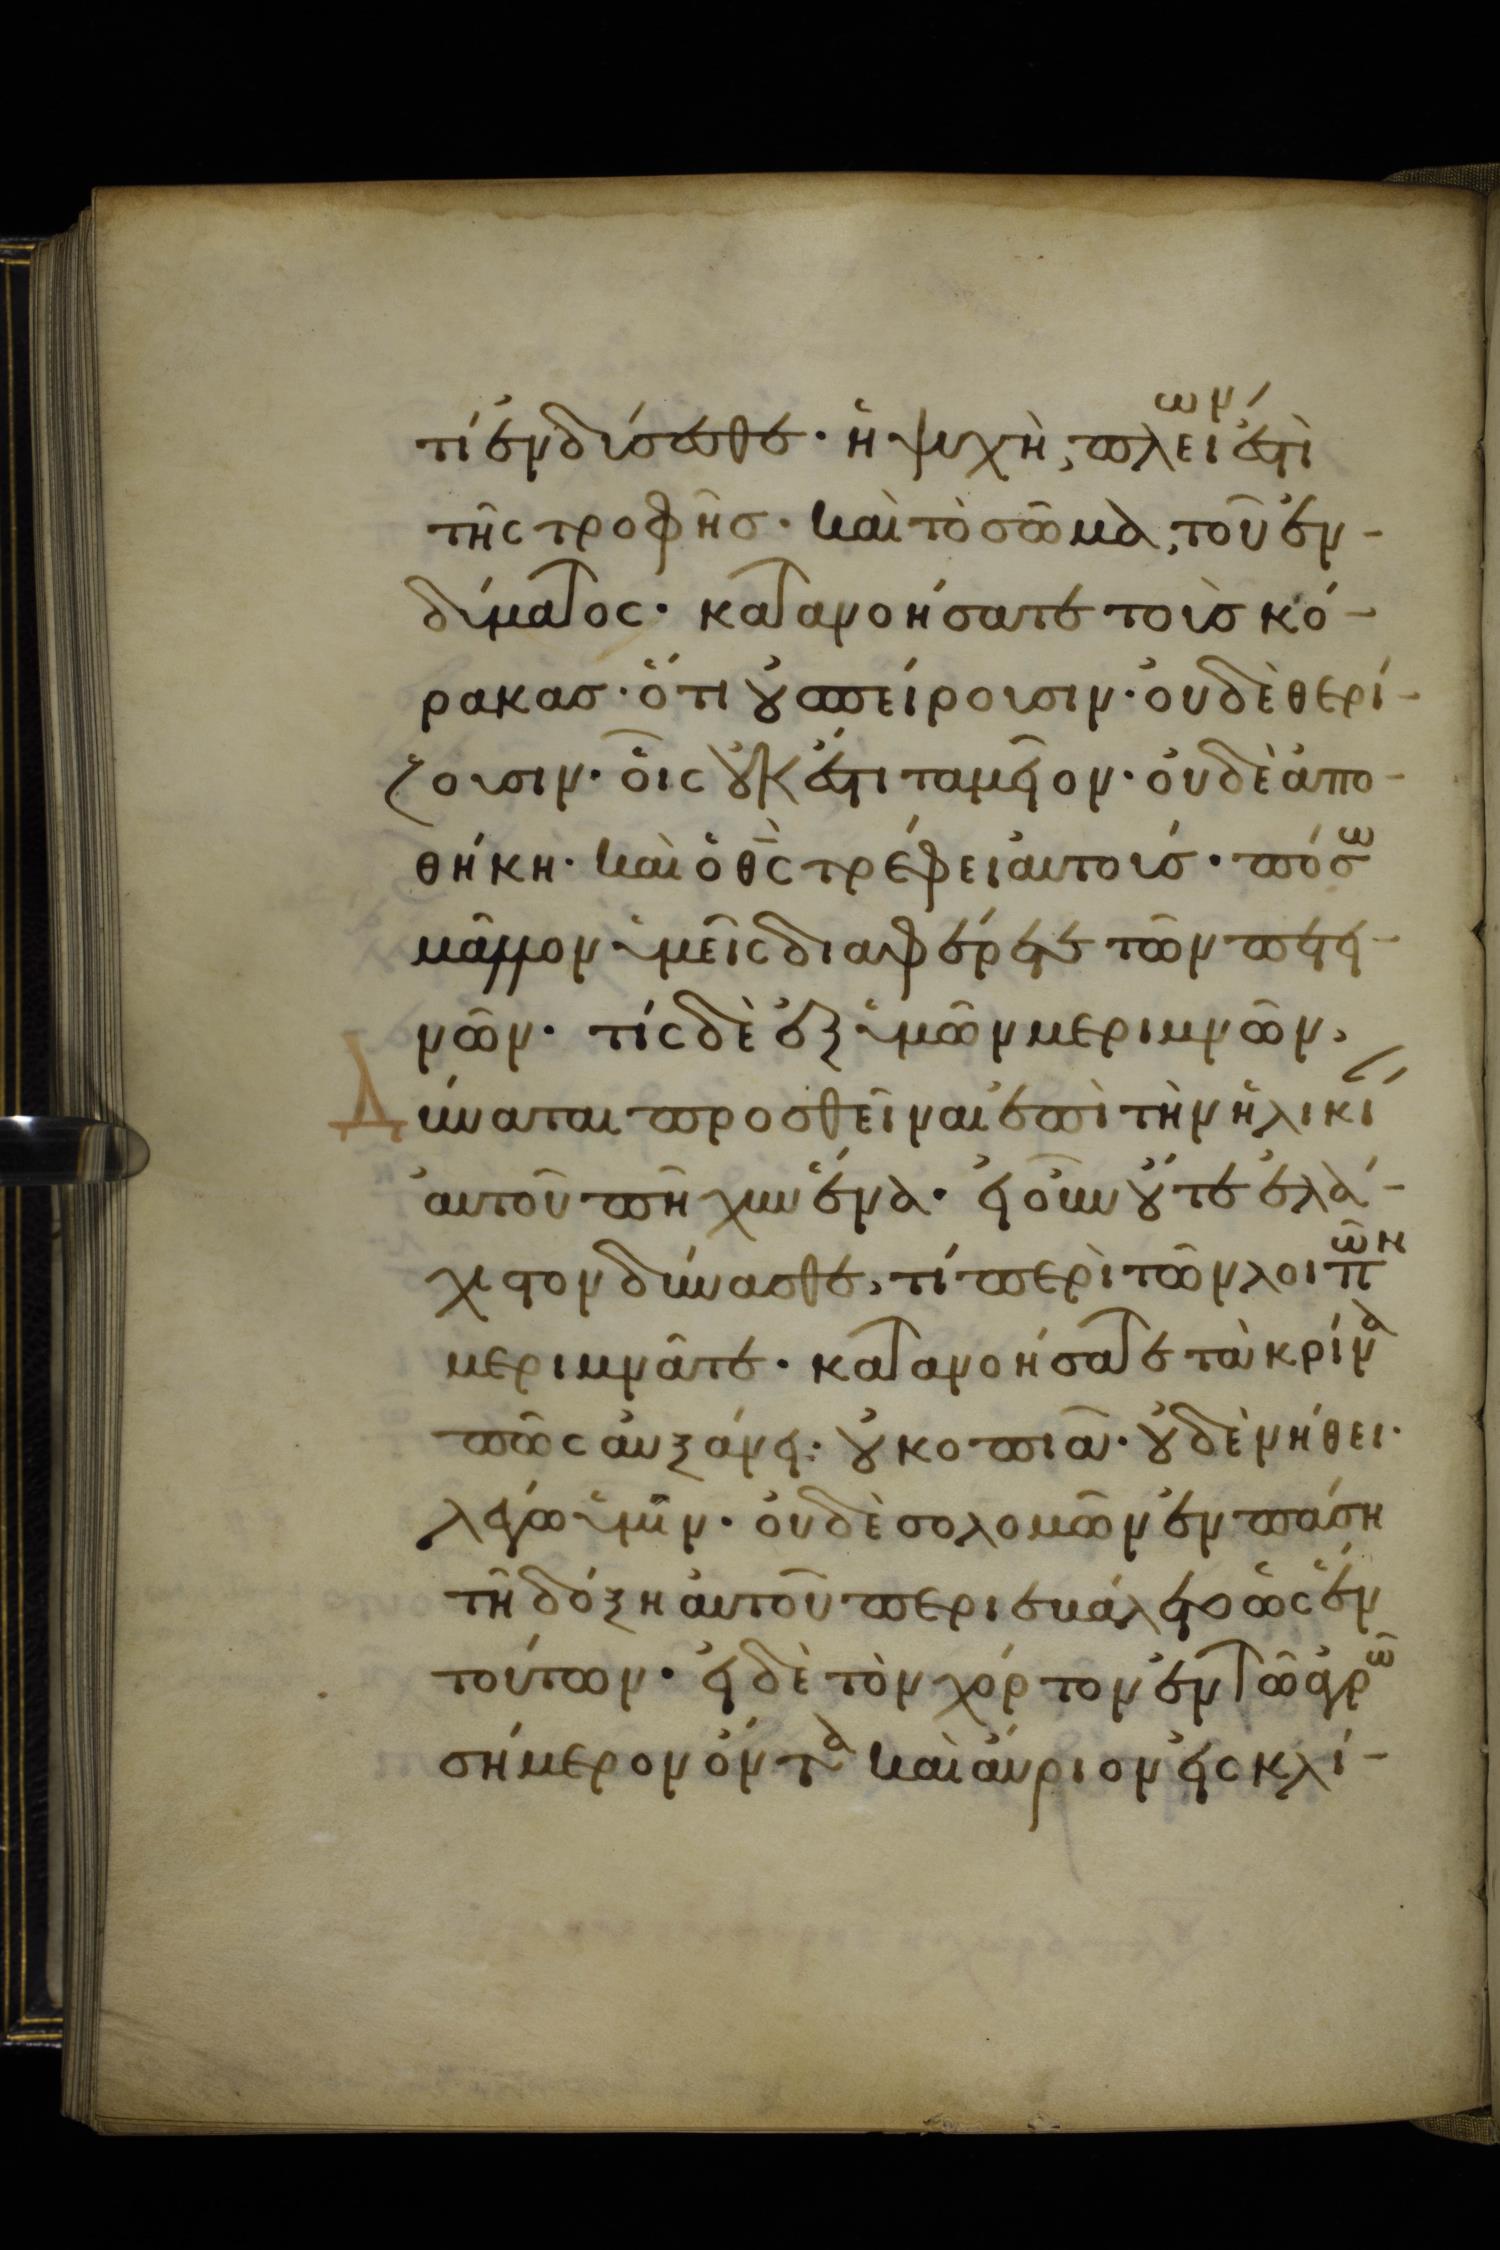 τί ἐνδύσησθε· ἡ ψυχὴ, πλείων ἐστὶ
τῆς τροφῆς· καὶ τὸ σῶμα, τοῦ ἐν-
δύματος· κατανοήσατε τοὺς κό-
ρακας· ὅτι οὐ σπείρουσιν· οὐδὲ θερί-
ζουσιν· οἷς οὐκ ἔστι ταμεῖον· οὐδὲ ἀπο-
θήκη· καὶ ὁ θς τρέφει αυτούς· πόσω
μᾶλλον ὑμεῖς διαφέρετε τῶν πετει-
νῶν· τίς δὲ ἐξ ὑμῶν μεριμνῶν,
Δύναται προσθεῖναι ἐπὶ τὴν ἡλικί
αὐτοῦ πῆχυν ἕνα· εἰ οὖν οὔτε ἐλά-
χιστον δύνασθε, τί περὶ τῶν λοιπῶν
μεριμνᾶτε· κατανοήσατε τὰ κρίνα
πῶς αὐξάνει· οὐ κοπιᾶ· οὐδὲ νήθει·
λέγω ὑμῖν· οὐδὲ σολομῶν ἐν πάση
τῆ δόξη ἀυτοῦ περιεβάλετο ὡς ἓν
τούτων· εἰ δὲ τὸν χόρτον ἐν τῶ ἀγρῶ
σήμερον ὄντα καὶ ἄυριον εἰς κλί-